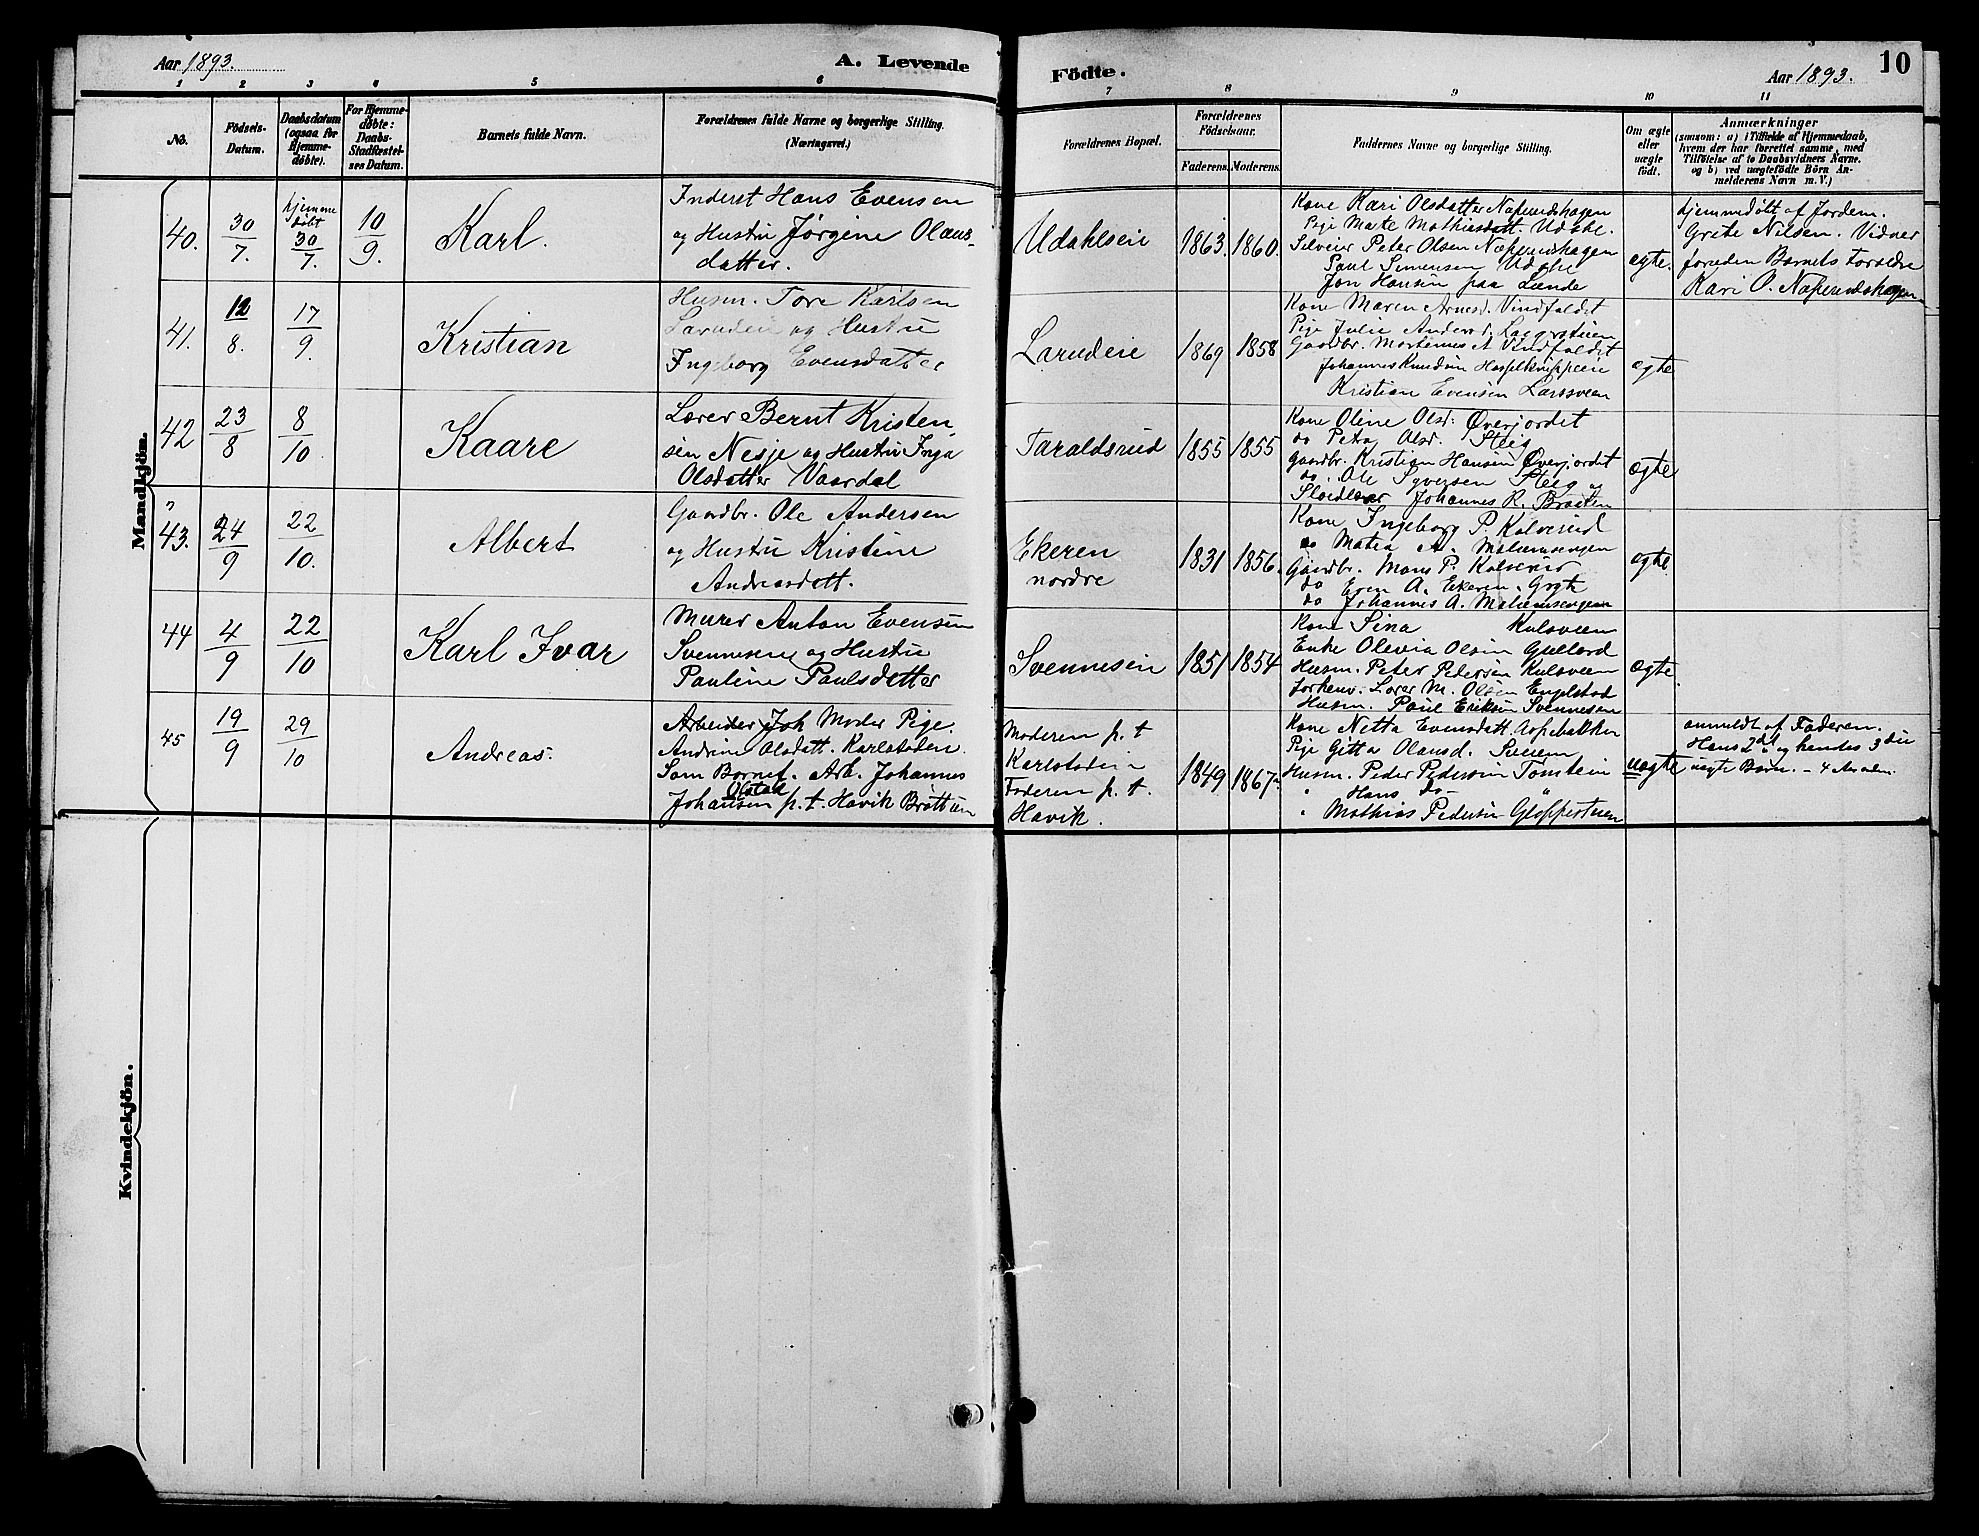 Aar 1893.
A. Levende
Födte.
Aar 1893.
10
1 2 3 4 5 6
7 8 9 10 11
No.
Födsels-
Datum.
Daabsdatum
(ogsaa for
Hjemme-
døbte).
For Hjemme-
døbte:
Daabs-
Stadfæstel-
ses Datum.
Barnets fulde Navn.
Forældrenes fulde Navne og borgerlige Stilling.
(Næringsvei.)
Forældrenes Bopæl.
Forældrenes
Födselsaar.
Faderens. Moderens.
Faddernes Navne og borgerlige Stilling.
Om ægte
eller
uægte
født.
Anmærkninger
(saasom: a) i Tilfælde af Hjemmedaab,
hvem der har forrettet samme, med
Tilføielse af to Daabsvidners Navne.
og b) ved uægtefödte Börn An-
melderens Navn m. V.)
Mandkjön.
40.
30/7.
hjemme
døbt
30/7.
10/9.
Karl.
Inderst Hans Evensen
og Hustru Jørgine Olaus-
datter.
Udahlseie
1863.
1860.
Kone Kari Olsdatter Næperudshagen
Pige Marte Mathiasdatt. Udahle.
Selveier Peter Olsen Næperudshagen
Paul Simensen Udahle
Jon Hansen paa Lunde
ægte.
hjemmedøbt af Jordem.
Grete Nilsen. Vidner
foruden Barnets Forældre
Kari O. Næperudshagen
41.
12/8.
17/9.
Kristian
Husm. Tore Karlsen
Larudeie og Hustru
Ingeborg Evensdatter
Larudeie
1869
1858
Kone Maren Arnesd. Vindfaldet
Pige Julie Andersd.
Gaardbr. Martinus A Vindfaldet
Johannes Knudsen
Kristian Evensen Larssveen
ægte
42
23/8
8/10.
Kaare
Lærer Bernt Kristen-
sen Nesje og Hustru Inga
Olsdatter Vaardal
Taraldsrud
1855
1855
Kone Oline Olsd. Øverjordet
do Petra Olsd. Steig
Gaardbr. Kristian Hansen Øverjordet
do. Ole Syversen Steig og
Sløidlærer Johannes R. Braaten
ægte
43.
24/9
22/10.
Albert
Gaardbr. Ole Andersen
og Hustru Kristine
Andreasdatt.
Ekeren
nordre
1831
1856.
Kone Ingeborg P. Kalverud
do Matea A.
Gaardbr. Mons P. Kalverud
do Even A. Ekeren.
do Johannes A.
ægte.
44
4/9
22/10
Karl Ivar
Murer Anton Evensen
Svenneseie og Hustru
Pauline Paulsdatter
Svenneseie
1851
1854
Kone Sina Kulsveen
Enke Olevia Olsen Gullord
Husm. Peter Pedersen Kulsveen
forhenv. Lærer M. Olsen Engelstad
Husm. Paul Eriksen Svennesen
ægte.
45
19/9
29/10
Andreas.
Arbeider Joh Moder Pige.
Andrine Olsdatt. Karlstadeie.
Som Barnef. Arb. Johannes
Olstad
Johansen p. t. Havik Brøttum
Moderen p. t
Karlstadeie
Faderen p. t.
Havik.
1849
1867.
Kone Netta Evensdatt. Aspebakken
Pige Gitta Olausd. Sveen
Husm. Peder Pedersen Tomstein
" Hans do "
" Mathias Pedersen Gloppestuen
uægte
anmeldt af Faderen.
Hans 2det og hendes 3die
uægte Barn.
Kvindekjön.